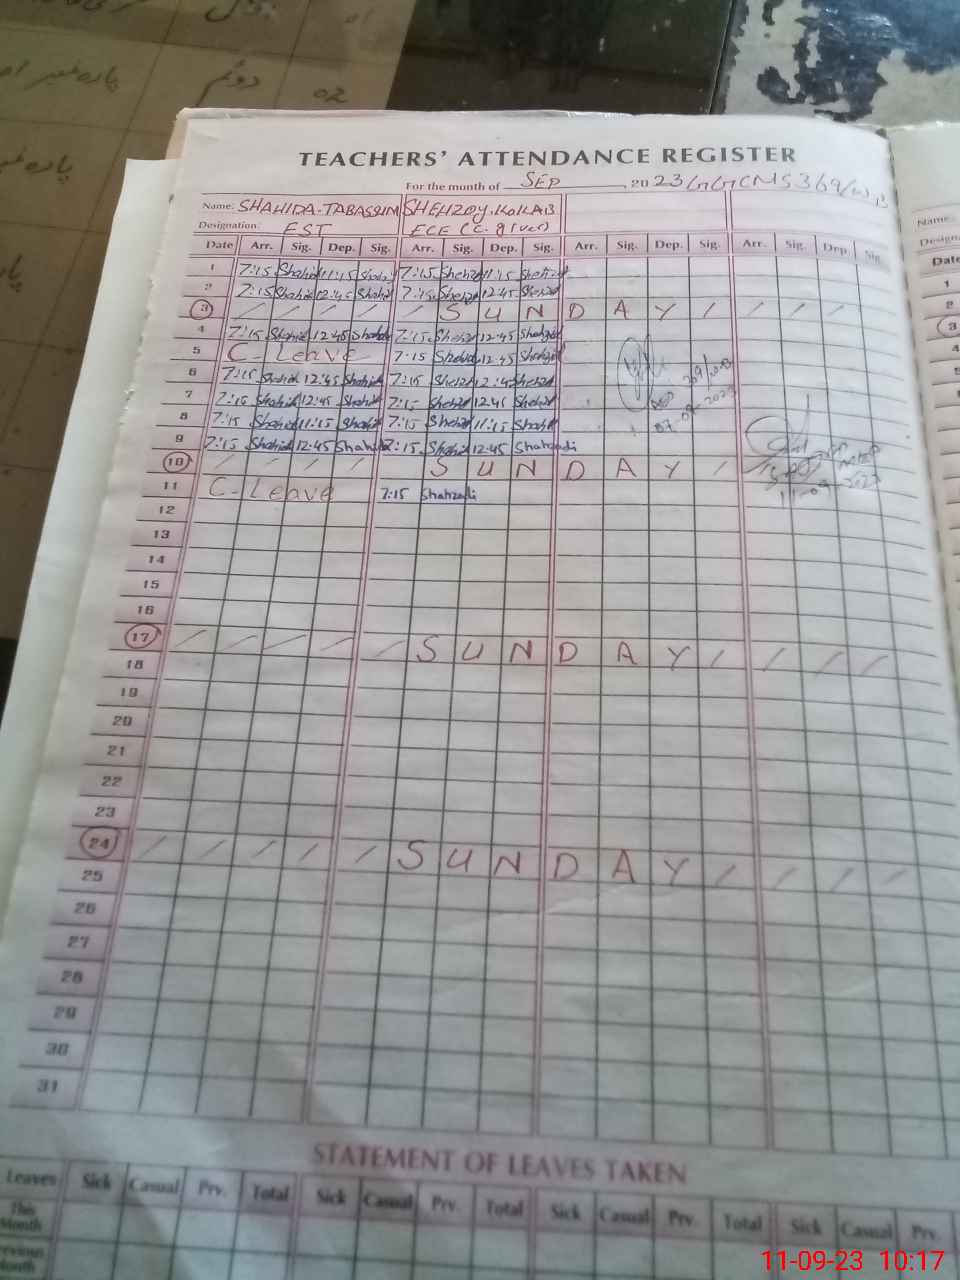 دوئم
02
TEACHERS' ATTENDANCE REGISTER
For the month of SEP 2023 GGCMS 369/W.B
Name: SHAHIDA-TABASSUM SHEHZDY.KOKAB
Designation: EST ECE (C. giver)
Date Arr. Sig. Dep. Sig. Arr. Sig. Dep. Sig. Arr. Sig. Dep. Sig. Arr. Sig. Dep. Sig.
1 7:15 Shahid 11:15 Shahid 7:15 Shehz 11:15 Shehzd
2 7:15 Shahid 12:45 Shahid 7:15 Shehz 12:45 Shehzd
3 / / / / / S U N D A Y / / / /
4 7:15 Shahid 12:45 Shahid 7:15 Shehz 12:45 Shehzd
5 C-Leave 7:15 Shehz 12:45 Shehzd
6 7:15 Shahid 12:45 Shahid 7:15 Shehz 12:45 Shehzd
7 7:15 Shahid 12:45 Shahid 7:15 Shehz 12:45 Shehzd
07-09-2023
8 7:15 Shahid 11:15 Shahid 7:15 Shehz 11:15 Shahd
9 7:15 Shahid 12:45 Shahid 7:15 Shahzd 12:45 Shahzadi
10 / / / / / S U N D A Y / /
11 C-Leave 7:15 Shahzadi
11-09
12
13
14
15
16
17 / / / / / S U N D A Y / / / /
18
19
20
21
22
23
24 / / / / / S U N D A Y / / / /
25
26
27
28
29
30
31
STATEMENT OF LEAVES TAKEN
Leaves Sick Casual Prv. Total Sick Casual Prv. Total Sick Casual Prv. Total Sick Casual Prv.
This Month
Previous Month
Name:
Date
1
2
3
4
5
11-09-23 10:17